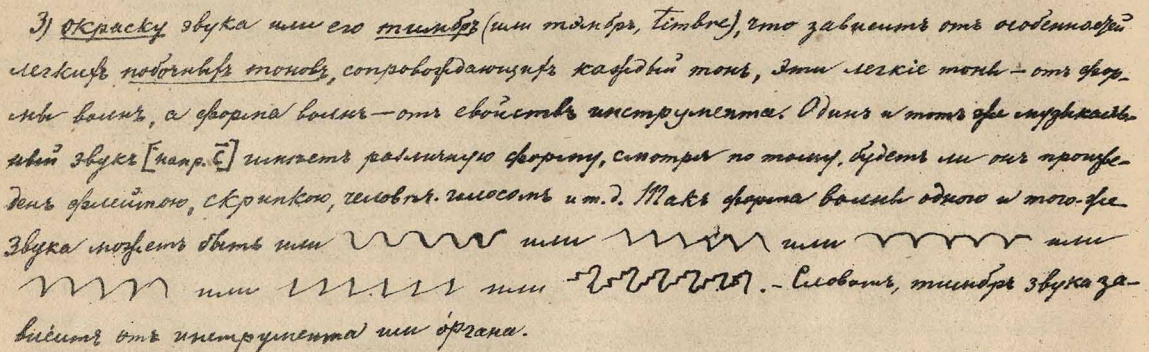 3) окраску звука или его тимбръ (или тэмбръ, timbre), что зависитъ отъ особенностей
легкихъ побочныхъ тоновъ, сопровождающихъ каждый тонъ, эти легкіе тоны — отъ фор-
мы волнъ, а форма волнъ — отъ свойствъ инструмента. Одинъ и тотъ же музыкаль-
ный звукъ [напр. C] имѣетъ различную форму, смотря по тому, будетъ ли онъ произве-
денъ флейтою, скрипкою, человѣч. голосомъ и т. д. Такъ форма волны одного и того-же
звука можетъ быть или или или или
или или . — Словомъ, тимбръ звука за-
виситъ отъ инструмента или о́ргана.